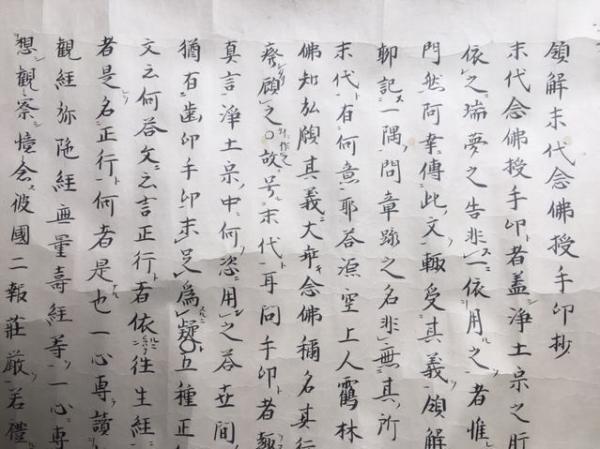 領解末代念佛授手印抄
末代念佛授手印者蓋淨土宗之肝
依之瑞夢之告非一依用之者惟
門然阿辛傳此文輙受其義領解
聊記一隅問章跡之名非無其所
末代有何意耶答源空上人靍林
佛知弘願其義大弃念佛稱名其行
廢願之故号末代耳問手印者
真言淨土宗中何恣用之答世間
猶有歯印手印未足為疑五種正
文云何答文云言正行者依往生經
者是名正行何者是也一心專讀
観經弥陁經無量壽經等一心專
想觀察憶念彼國二報莊嚴若禮